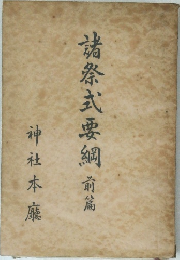 諸祭式要綱 前篇
神社本廳